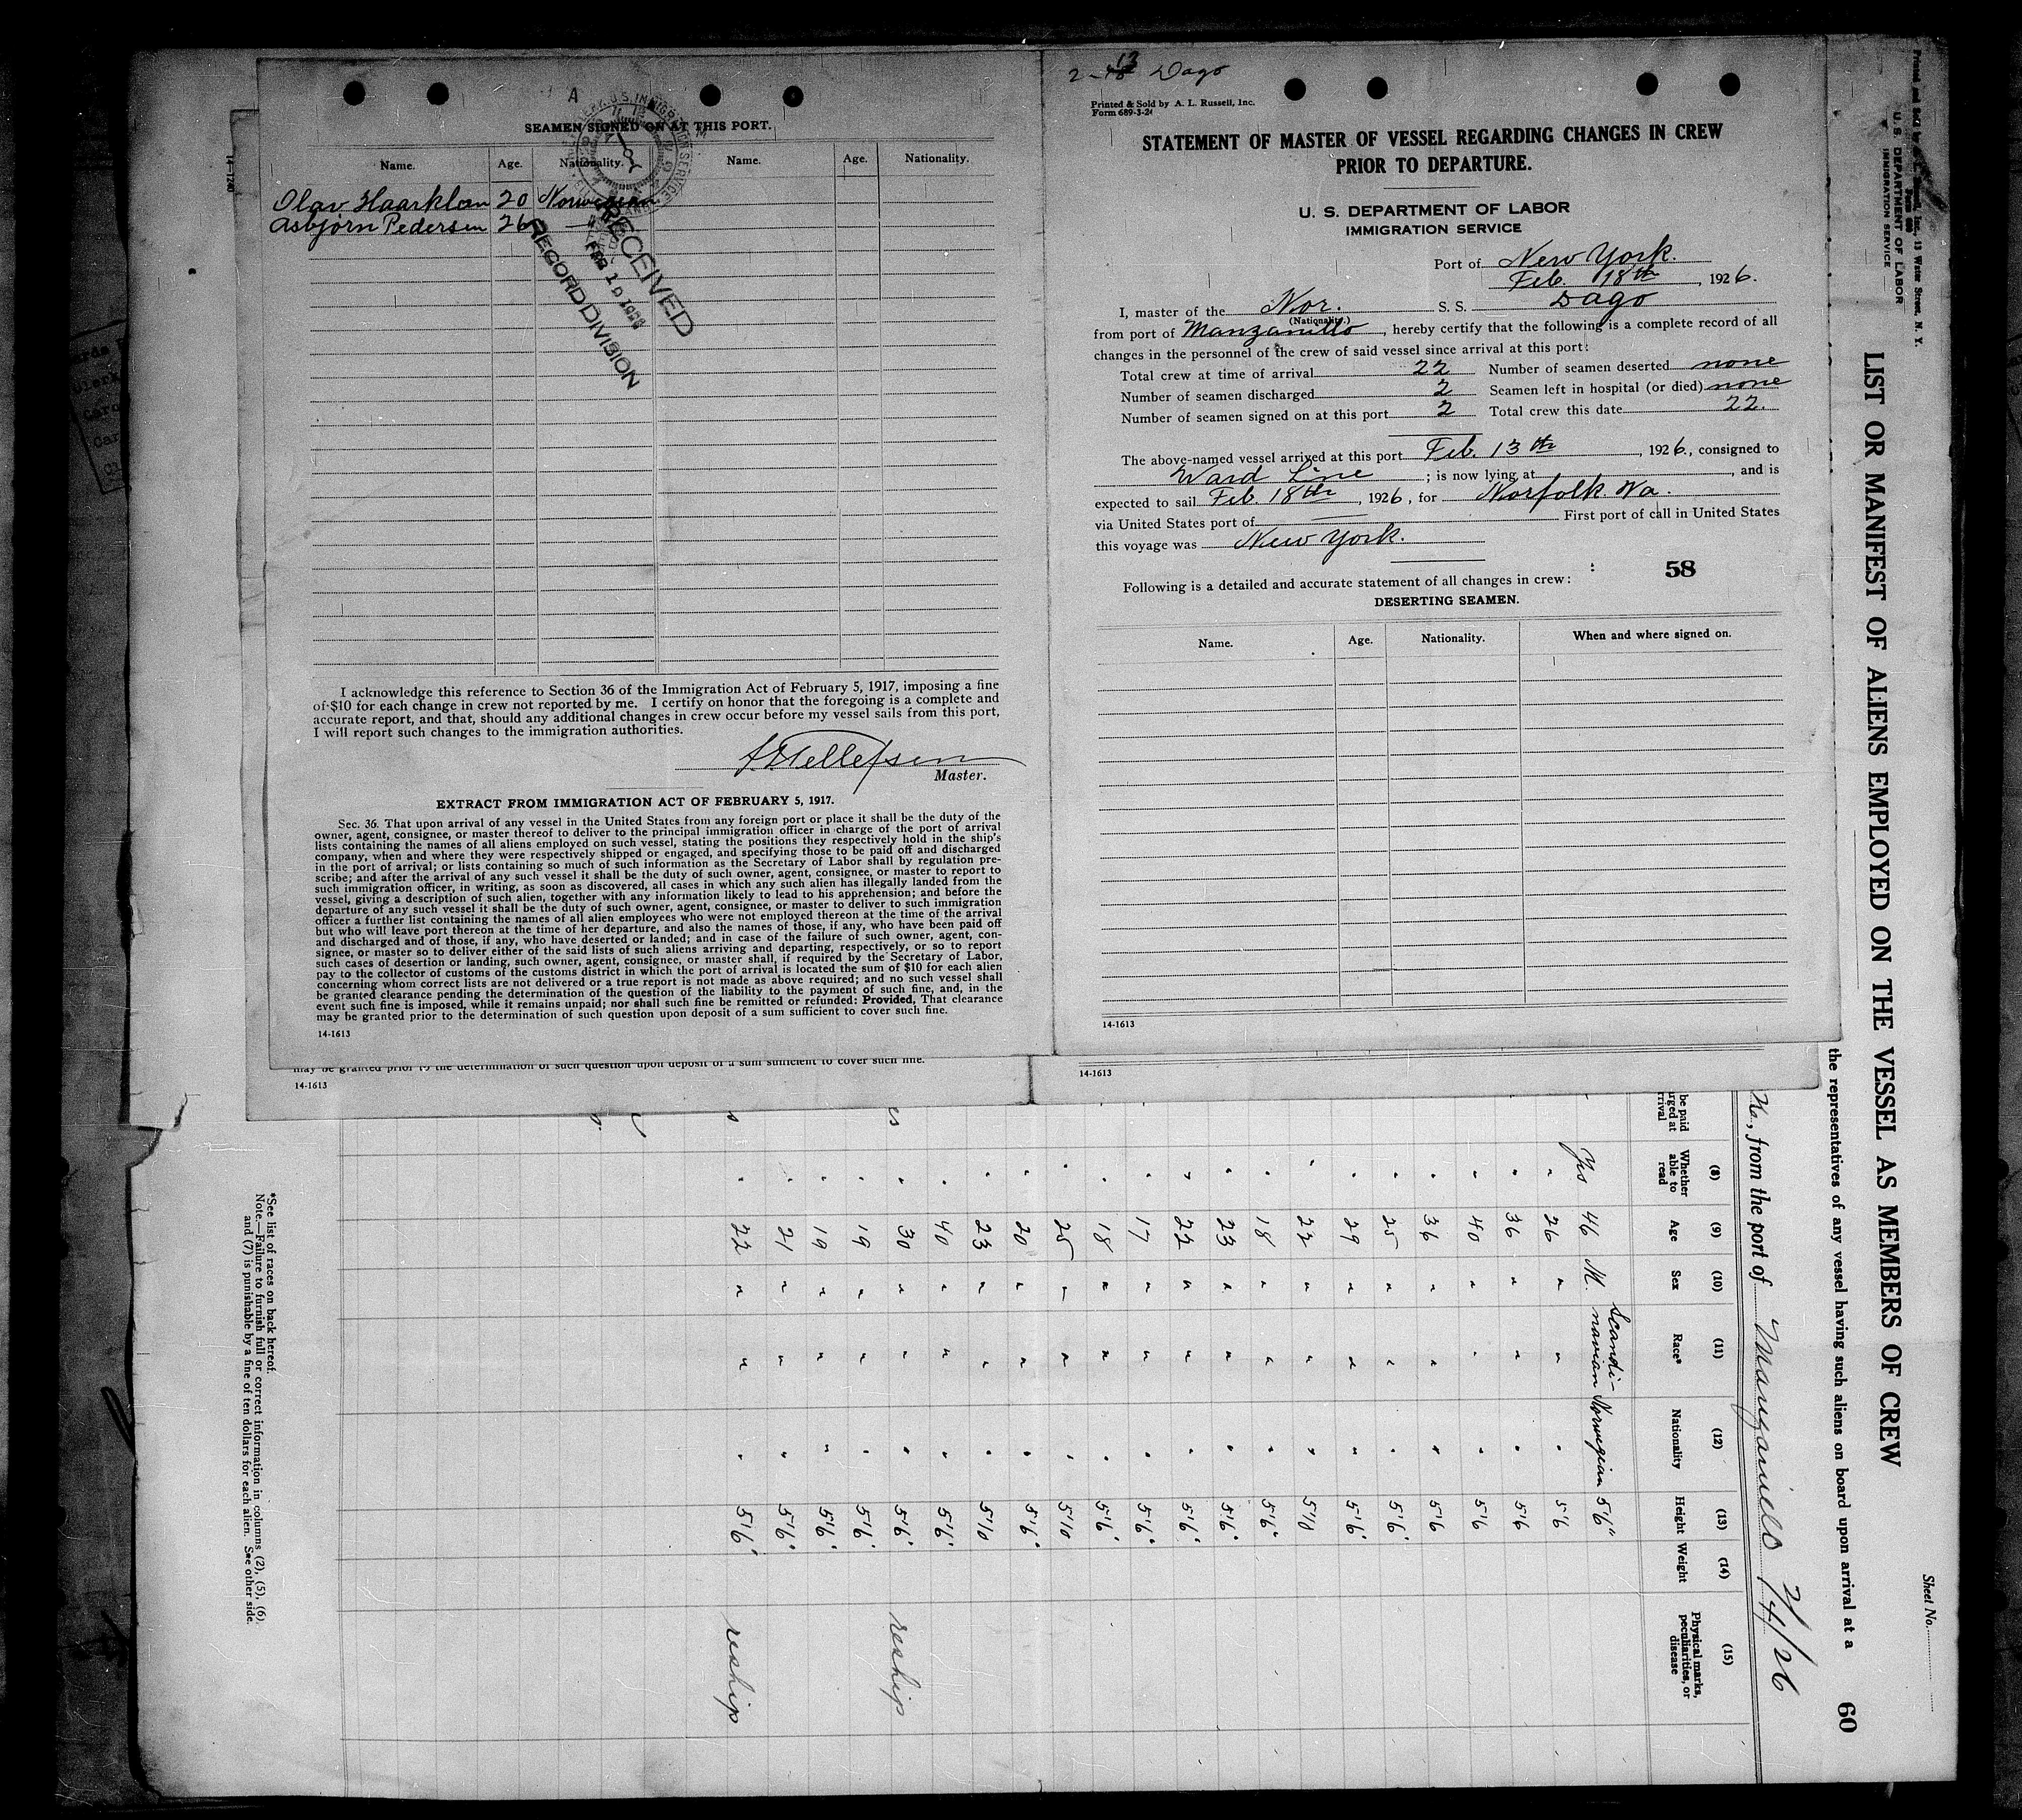 A
SEAMEN SIGNED ON AT THIS PORT.
Name. Age. Nationality. Name. Age. Nationality.
Olav Haarklau 20 Norwegian
Asbjørn Pedersen 26 "
RECEIVED
FEB 19 1926
RECORD DIVISION
I acknowledge this reference to Section 36 of the Immigration Act of February 5, 1917, imposing a fine
of $10 for each change in crew not reported by me. I certify on honor that the foregoing is a complete and
accurate report, and that, should any additional changes in crew occur before my vessel sails from this port,
I will report such changes to the immigration authorities.
Tellefsen
Master.
EXTRACT FROM IMMIGRATION ACT OF FEBRUARY 5, 1917.
Sec. 36. That upon arrival of any vessel in the United States from any foreign port or place it shall be the duty of the
owner, agent, consignee, or master thereof to deliver to the principal immigration officer in charge of the port of arrival
lists containing the names of all aliens employed on such vessel, stating the positions they respectively hold in the ship's
company, when and where they were respectively shipped or engaged, and specifying those to be paid off and discharged
in the port of arrival; or lists containing so much of such information as the Secretary of Labor shall by regulation pre-
scribe; and after the arrival of any such vessel it shall be the duty of such owner, agent, consignee, or master to report to
such immigration officer, in writing, as soon as discovered, all cases in which any such alien has illegally landed from the
vessel, giving a description of such alien, together with any information likely to lead to his apprehension; and before the
departure of any such vessel it shall be the duty of such owner, agent, consignee, or master to deliver to such immigration
officer a further list containing the names of all alien employees who were not employed thereon at the time of the arrival
but who will leave port thereon at the time of her departure, and also the names of those, if any, who have been paid off
and discharged and of those, if any, who have deserted or landed; and in case of the failure of such owner, agent, con-
signee, or master so to deliver either of the said lists of such aliens arriving and departing, respectively, or so to report
such cases of desertion or landing, such owner, agent, consignee, or master shall, if required by the Secretary of Labor,
pay to the collector of customs of the customs district in which the port of arrival is located the sum of $10 for each alien
concerning whom correct lists are not delivered or a true report is not made as above required; and no such vessel shall
be granted clearance pending the determination of the question of the liability to the payment of such fine, and, in the
event such fine is imposed, while it remains unpaid; nor shall such fine be remitted or refunded: Provided, That clearance
may be granted prior to the determination of such question upon deposit of a sum sufficient to cover such fine.
14-1613
may be granted prior to the determination of such question upon deposit of a sum sufficient to cover such fine.
14-1613
14-1240
2-13 Dago
Printed & Sold by A. L. Russell, Inc.
Form 689-3-24
STATEMENT OF MASTER OF VESSEL REGARDING CHANGES IN CREW
PRIOR TO DEPARTURE.
U. S. DEPARTMENT OF LABOR
IMMIGRATION SERVICE
Port of New York.
Feb. 18th, 1926.
I, master of the Nor. S. S. Dago
(Nationality.)
from port of Manzanillo, hereby certify that the following is a complete record of all
changes in the personnel of the crew of said vessel since arrival at this port:
Total crew at time of arrival 22 Number of seamen deserted none
Number of seamen discharged 2 Seamen left in hospital (or died) none
Number of seamen signed on at this port 2 Total crew this date 22.
The above-named vessel arrived at this port Feb. 13th, 1926., consigned to
Ward Line; is now lying at , and is
expected to sail Feb. 18th, 1926, for Norfolk Va.
via United States port of — First port of call in United States
this voyage was New York.
58
Following is a detailed and accurate statement of all changes in crew:
DESERTING SEAMEN.
Name. Age. Nationality. When and where signed on.
14-1613
14-1613
Sheet No.
U. S. DEPARTMENT OF LABOR
IMMIGRATION SERVICE
LIST OR MANIFEST OF ALIENS EMPLOYED ON THE VESSEL AS MEMBERS OF CREW
the representatives of any vessel having such aliens on board upon arrival at a
60
, from the port of Manzanillo 2/4/26
(8) (9) (10) (11) (12) (13) (14) (15)
Whether able to read Age Sex Race* Nationality Height Weight Physical marks, peculiarities, or disease
Yes 46 M. Scandinavian Norwegian 5'6"
" 26 " " " 5'6
" 36 " " " 5'6
" 40 " " " 5'6
" 36 " " " 5'6
" 25 " " " 5'6"
" 29 " " " 5'6"
" 22 " " " 5'10
" 18 " " " 5'6"
" 23 " " " 5'6"
" 22 " " " 5'6"
" 17 " " " 5'6"
" 18 " " " 5'6"
" 25 " " " 5'10
" 20 " " " 5'6"
" 23 " " " 5'10
" 40 " " " 5'6"
" 30 " " " 5'6" reship
" 19 " " " 5'6"
" 19 " " " 5'6"
" 21 " " " 5'6"
" 22 " " " 5'6" reship
*See list of races on back hereof.
Note.—Failure to furnish full or correct information in columns (2), (5), (6),
and (7) is punishable by a fine of ten dollars for each alien. See other side.